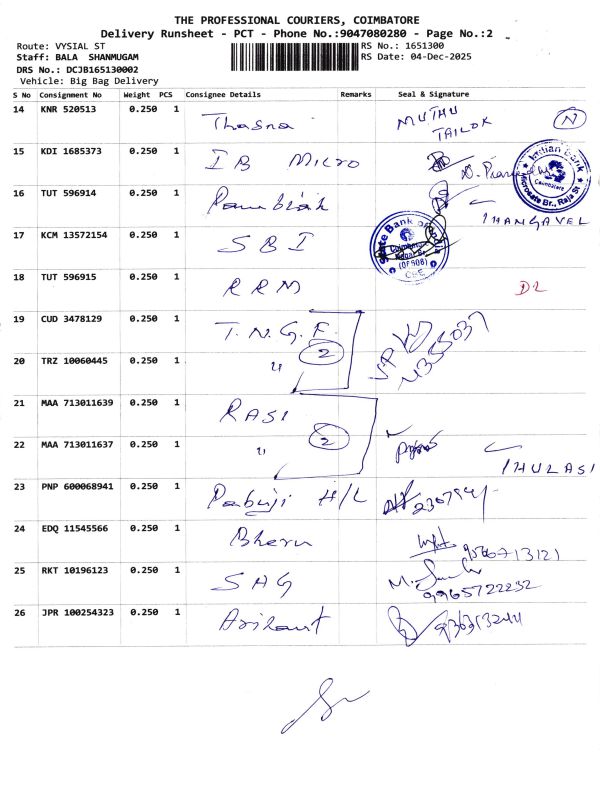 THE PROFESSIONAL COURIERS, COIMBATORE
Delivery Runsheet - PCT - Phone No.:9047080280 - Page No.:2
Route: VYSIAL ST RS No.: 1651300
Staff: BALA SHANMUGAM RS Date: 04-Dec-2025
DRS No.: DCJB165130002
Vehicle: Big Bag Delivery
S No Consignment No Weight PCS Consignee Details Remarks Seal & Signature
14 KNR 520513 0.250 1 Thasna MUTHU TAILOR N
15 KDI 1685373 0.250 1 IB MICRO
Indian Bank
Coimbatore
Microsate Br., Raja St
16 TUT 596914 0.250 1 THANGAVEL
17 KCM 13572154 0.250 1 SBI
State Bank of India
(OF608)
CBE
18 TUT 596915 0.250 1 RRM DL
19 CUD 3478129 0.250 1 T.N.G.F.
20 TRZ 10060445 0.250 1 " 2
21 MAA 713011639 0.250 1 RASI
22 MAA 713011637 0.250 1 " 2 THULASI
23 PNP 600068941 0.250 1 Pabuji H/L
24 EDQ 11545566 0.250 1 Bheru
25 RKT 10196123 0.250 1 SAG 9965722232
26 JPR 100254323 0.250 1 Arihant